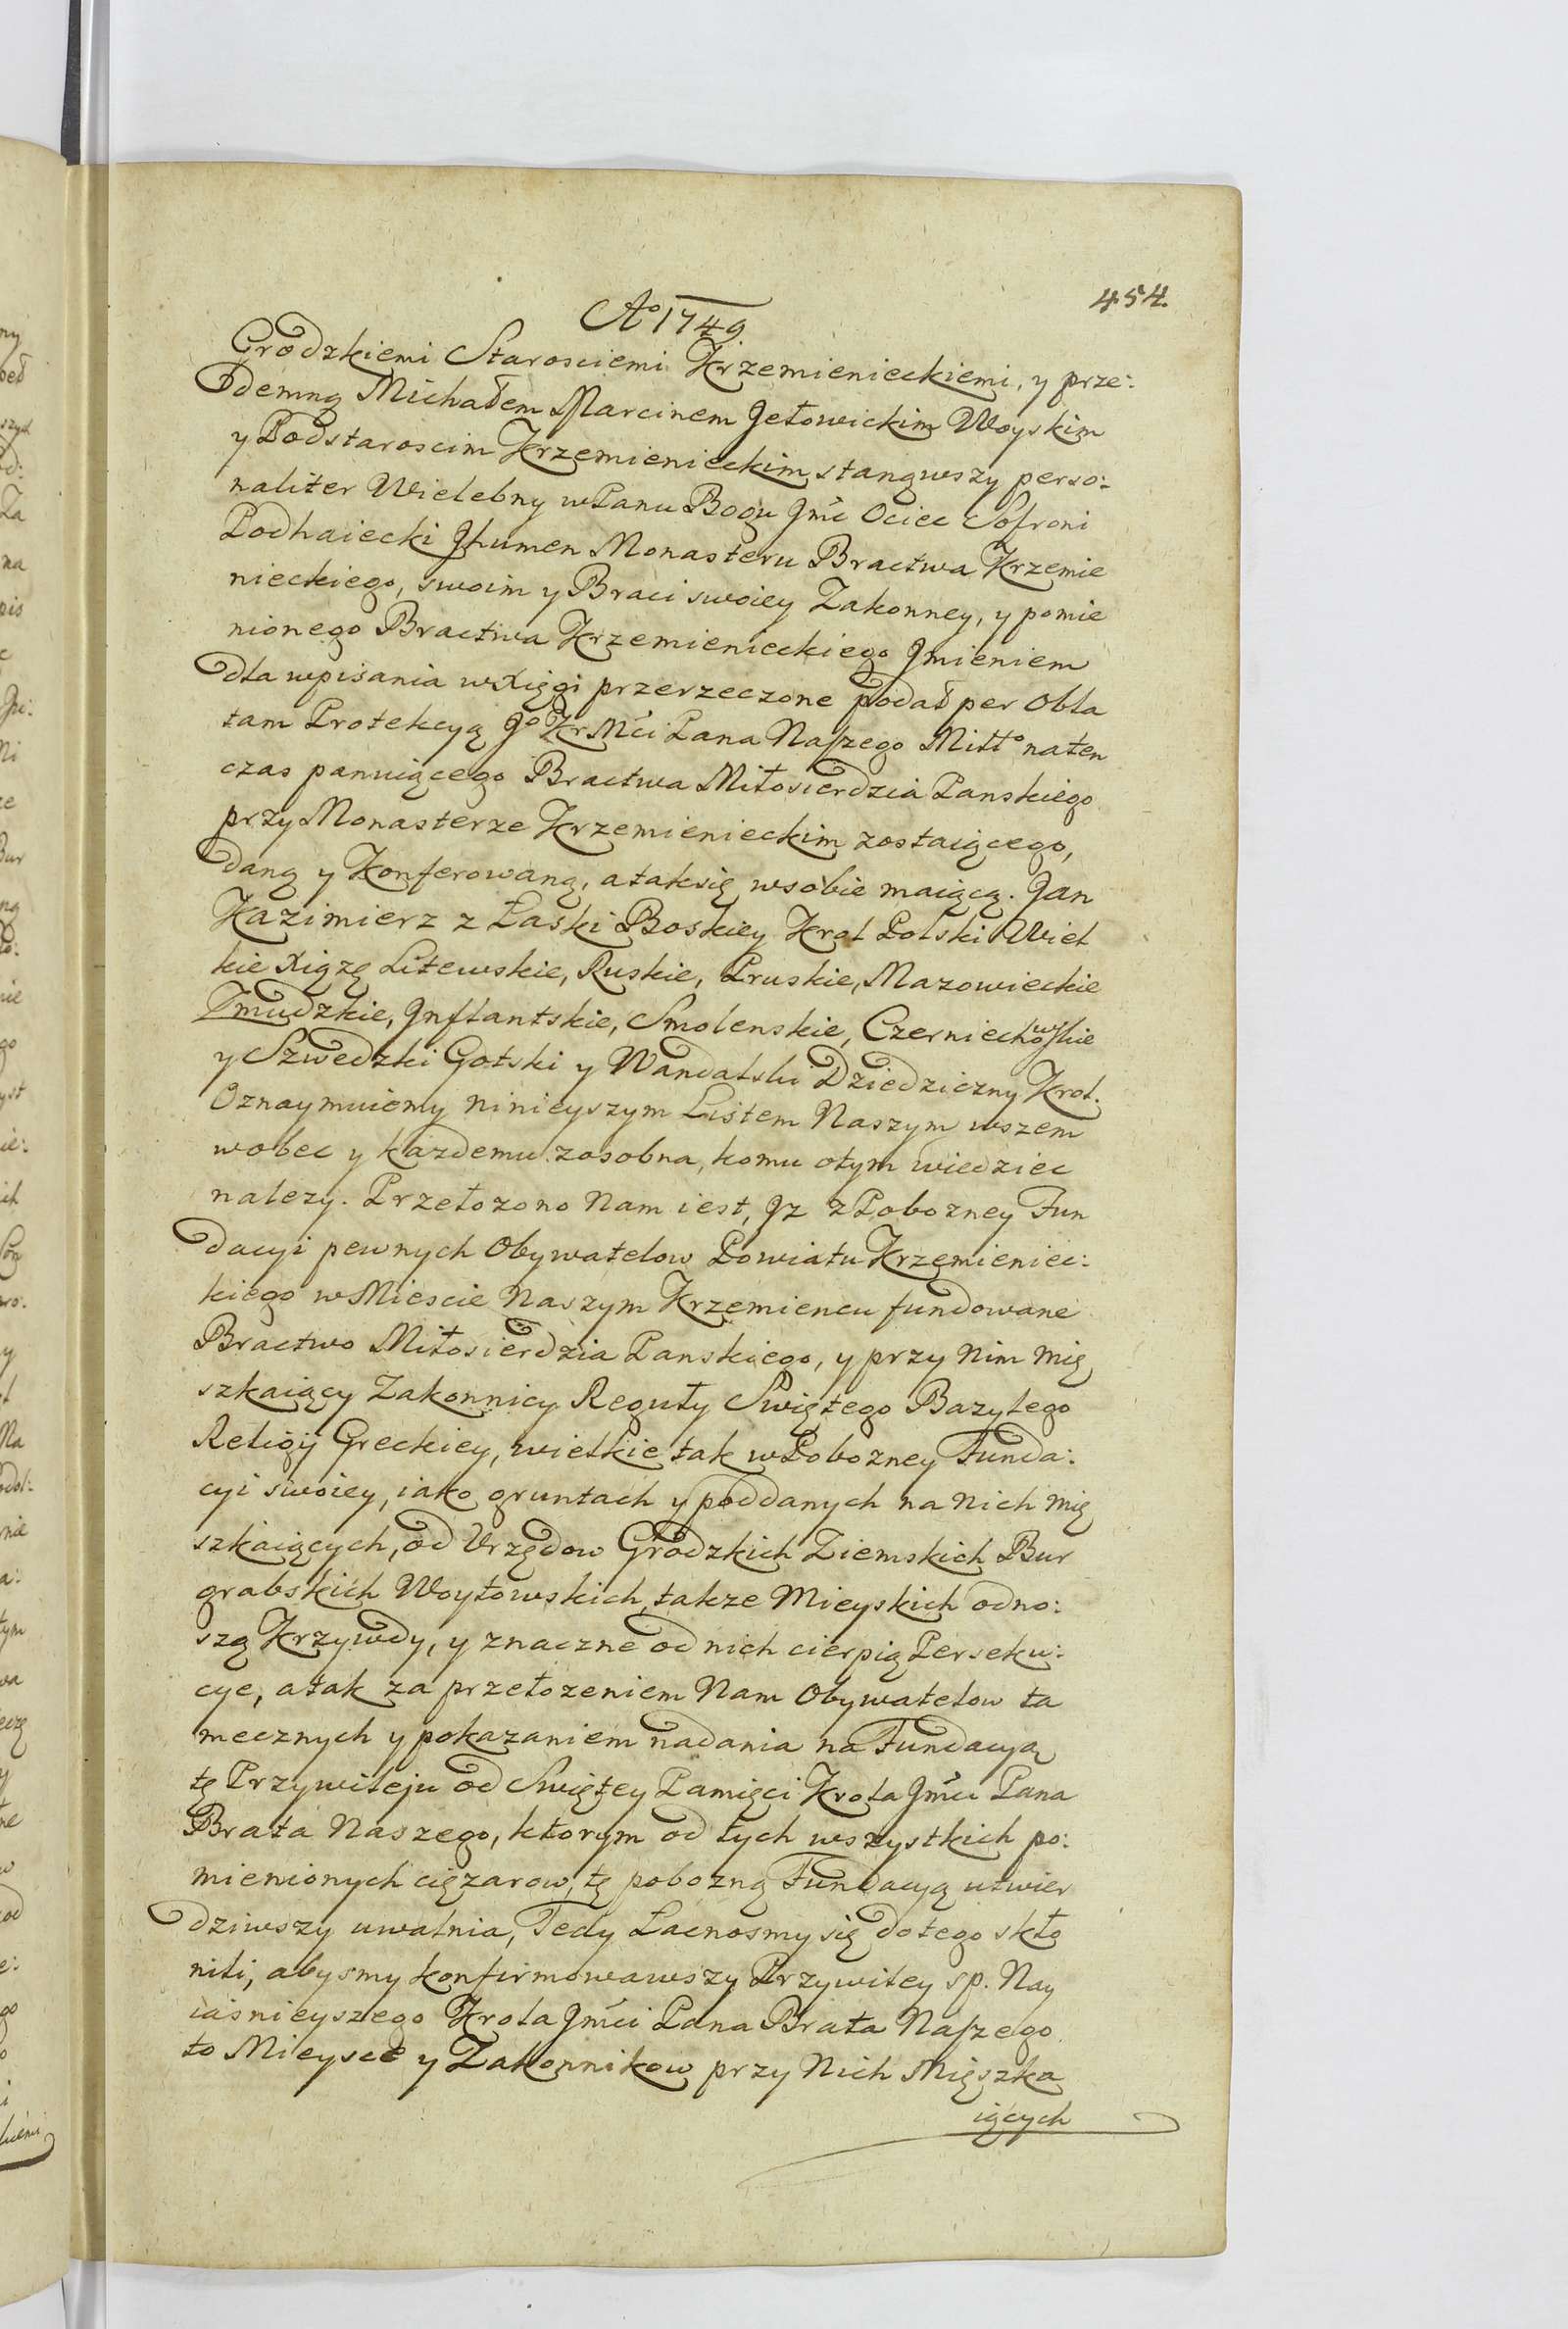 454.
Ao 1749
Grodzkiemi Starosciemi Krzemienieckiemi, y prze:
demną Michałem Marcinem Jełowickim Woyskim
y Podstaroscim Krzemienieckim stanąwszy perso:
naliter Wielebny w Panu Bogu Jmć Ociec Sofroni
Podhaiecki Jhumen Monasteru Bractwa Krzemie
nieckiego, swoim y Braci swoiey Zakonney, y pomie
nionego Bractwa Krzemienieckiego Jmieniem
dla wpisania w Xięgi przerzeczone podał per Obla
tam Protekcyą Jo Kr Mci Pana Naszego Miłło naten
czas panuiącego Bractwa Miłosierdzia Panskiego
przy Monasterze Krzemienieckim zostaiącego,
daną y Konferowaną, a tak się w sobie maiącą. Jan
Kazimierz z Łaski Boskiey Krol Polski Wiel
kie Xiązę Litewskie, Ruskie, Pruskie, Mazowieckie
Zmudzkie, Jnflantskie, Smolenskie, Czerniechowskie
y Szwedzki Gotski y Wandalski Dziedziczny Krol.
Oznaymuiemy ninieyszym Listem Naszym wszem
wobec y kazdemu zosobna, komu otym wiedziec
nalezy. Przełozono Nam iest, Jz z Pobozney Fun
dacyi pewnych Obywatelow Powiatu Krzemieniec:
kiego w Miescie Naszym Krzemiencu fundowane
Bractwo Miłosierdzia Panskiego, y przy Nim mię
szkaiący Zakonnicy Reguły Swiętego Bazylego
Religij Greckiey, wielkie tak w Pobozney Funda:
cyi swoiey, iako gruntach y poddanych na Nich mię
szkaiących, od Urzędow Grodzkich Ziemskich Bur
grabskich Woytowskich, takze Mieyskich odno:
szą Krzywdy, y znaczne od nich cierpią Perseku:
cye, a tak za przełozeniem Nam Obywatelow ta
mecznych y pokazaniem nadania na Fundacyą
tę Przywileju od Swiętey Pamięci Krola Jmci Pana
Brata Naszego, ktorym od tych wszystkich po:
mienionych cięzarow, tę pobozną Fundacyą utwier
dziwszy uwalnia, Tedy Łacnosmy się do tego skło
nili, abysmy konfirmowawszy Przywiley sp. Nay
iasnieyszego Krola Jmci Pana Brata Naszego
to Mieysce y Zakonnikow przy Nich Mięszka
iących